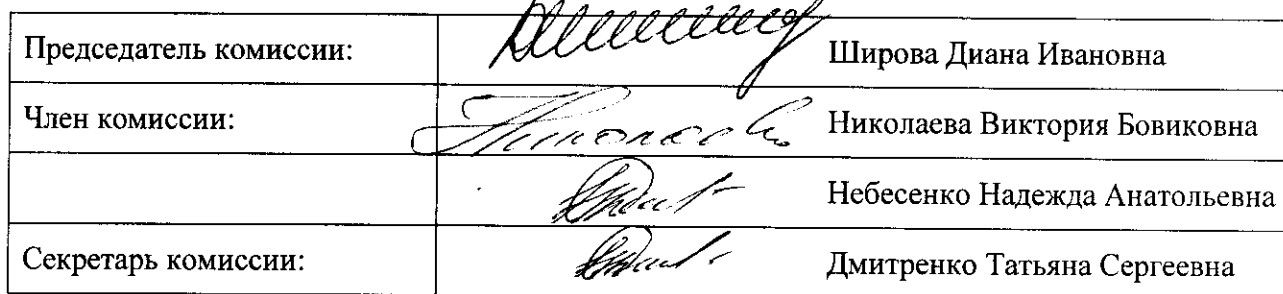 Председатель комиссии: Широва Диана Ивановна
Член комиссии: Николаева Виктория Бовиковна
Небесенко Надежда Анатольевна
Секретарь комиссии: Дмитренко Татьяна Сергеевна